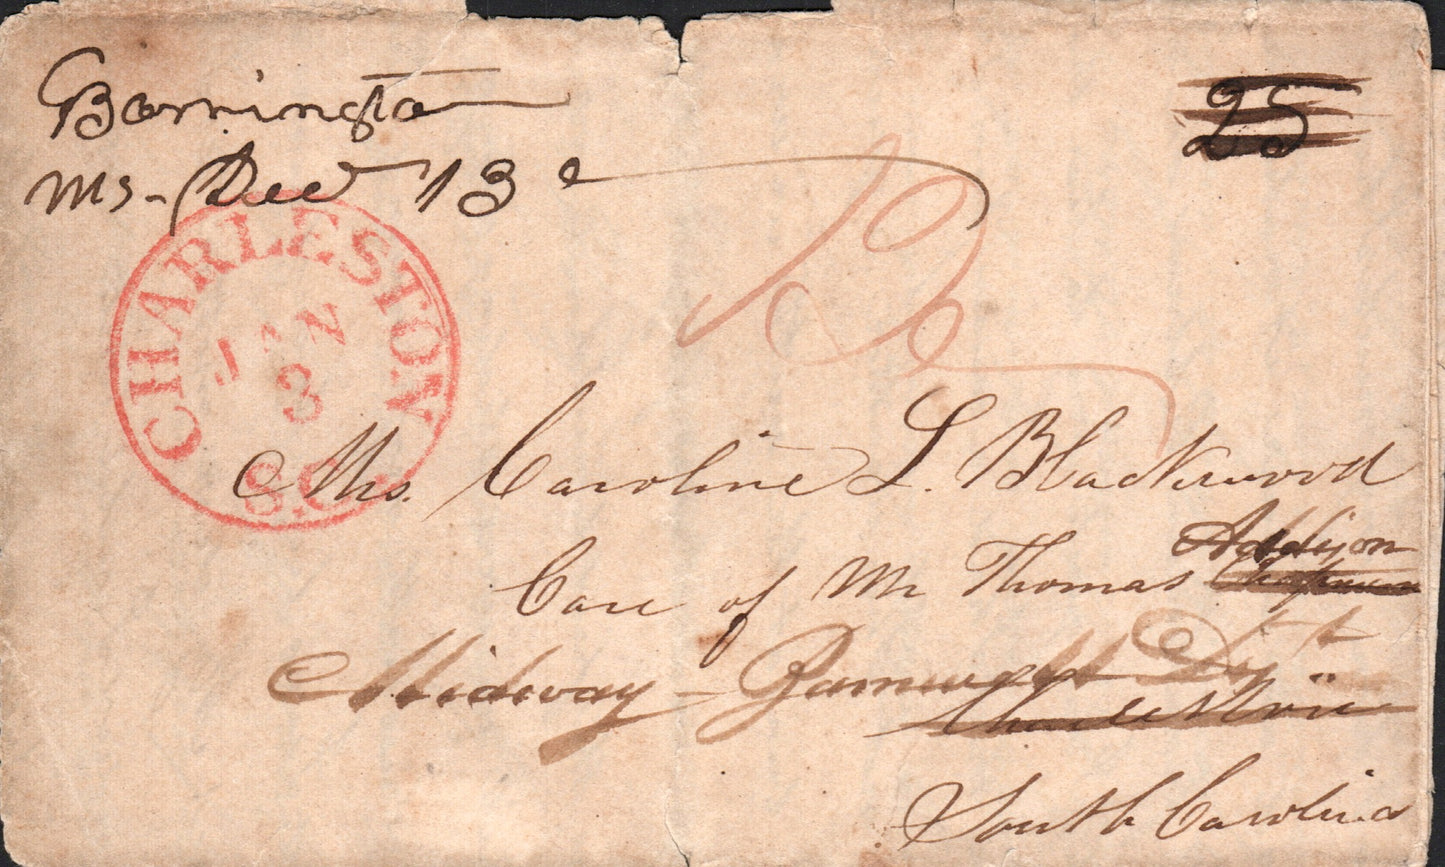 Barrington
Ms - Dec 13
25
CHARLESTON
JAN
3
S.C.
12
Mrs. Caroline L. Blackwood
Care of Mr Thomas Addison
Chapman
Midway - Barnwell Dist
Charleston
South Carolina